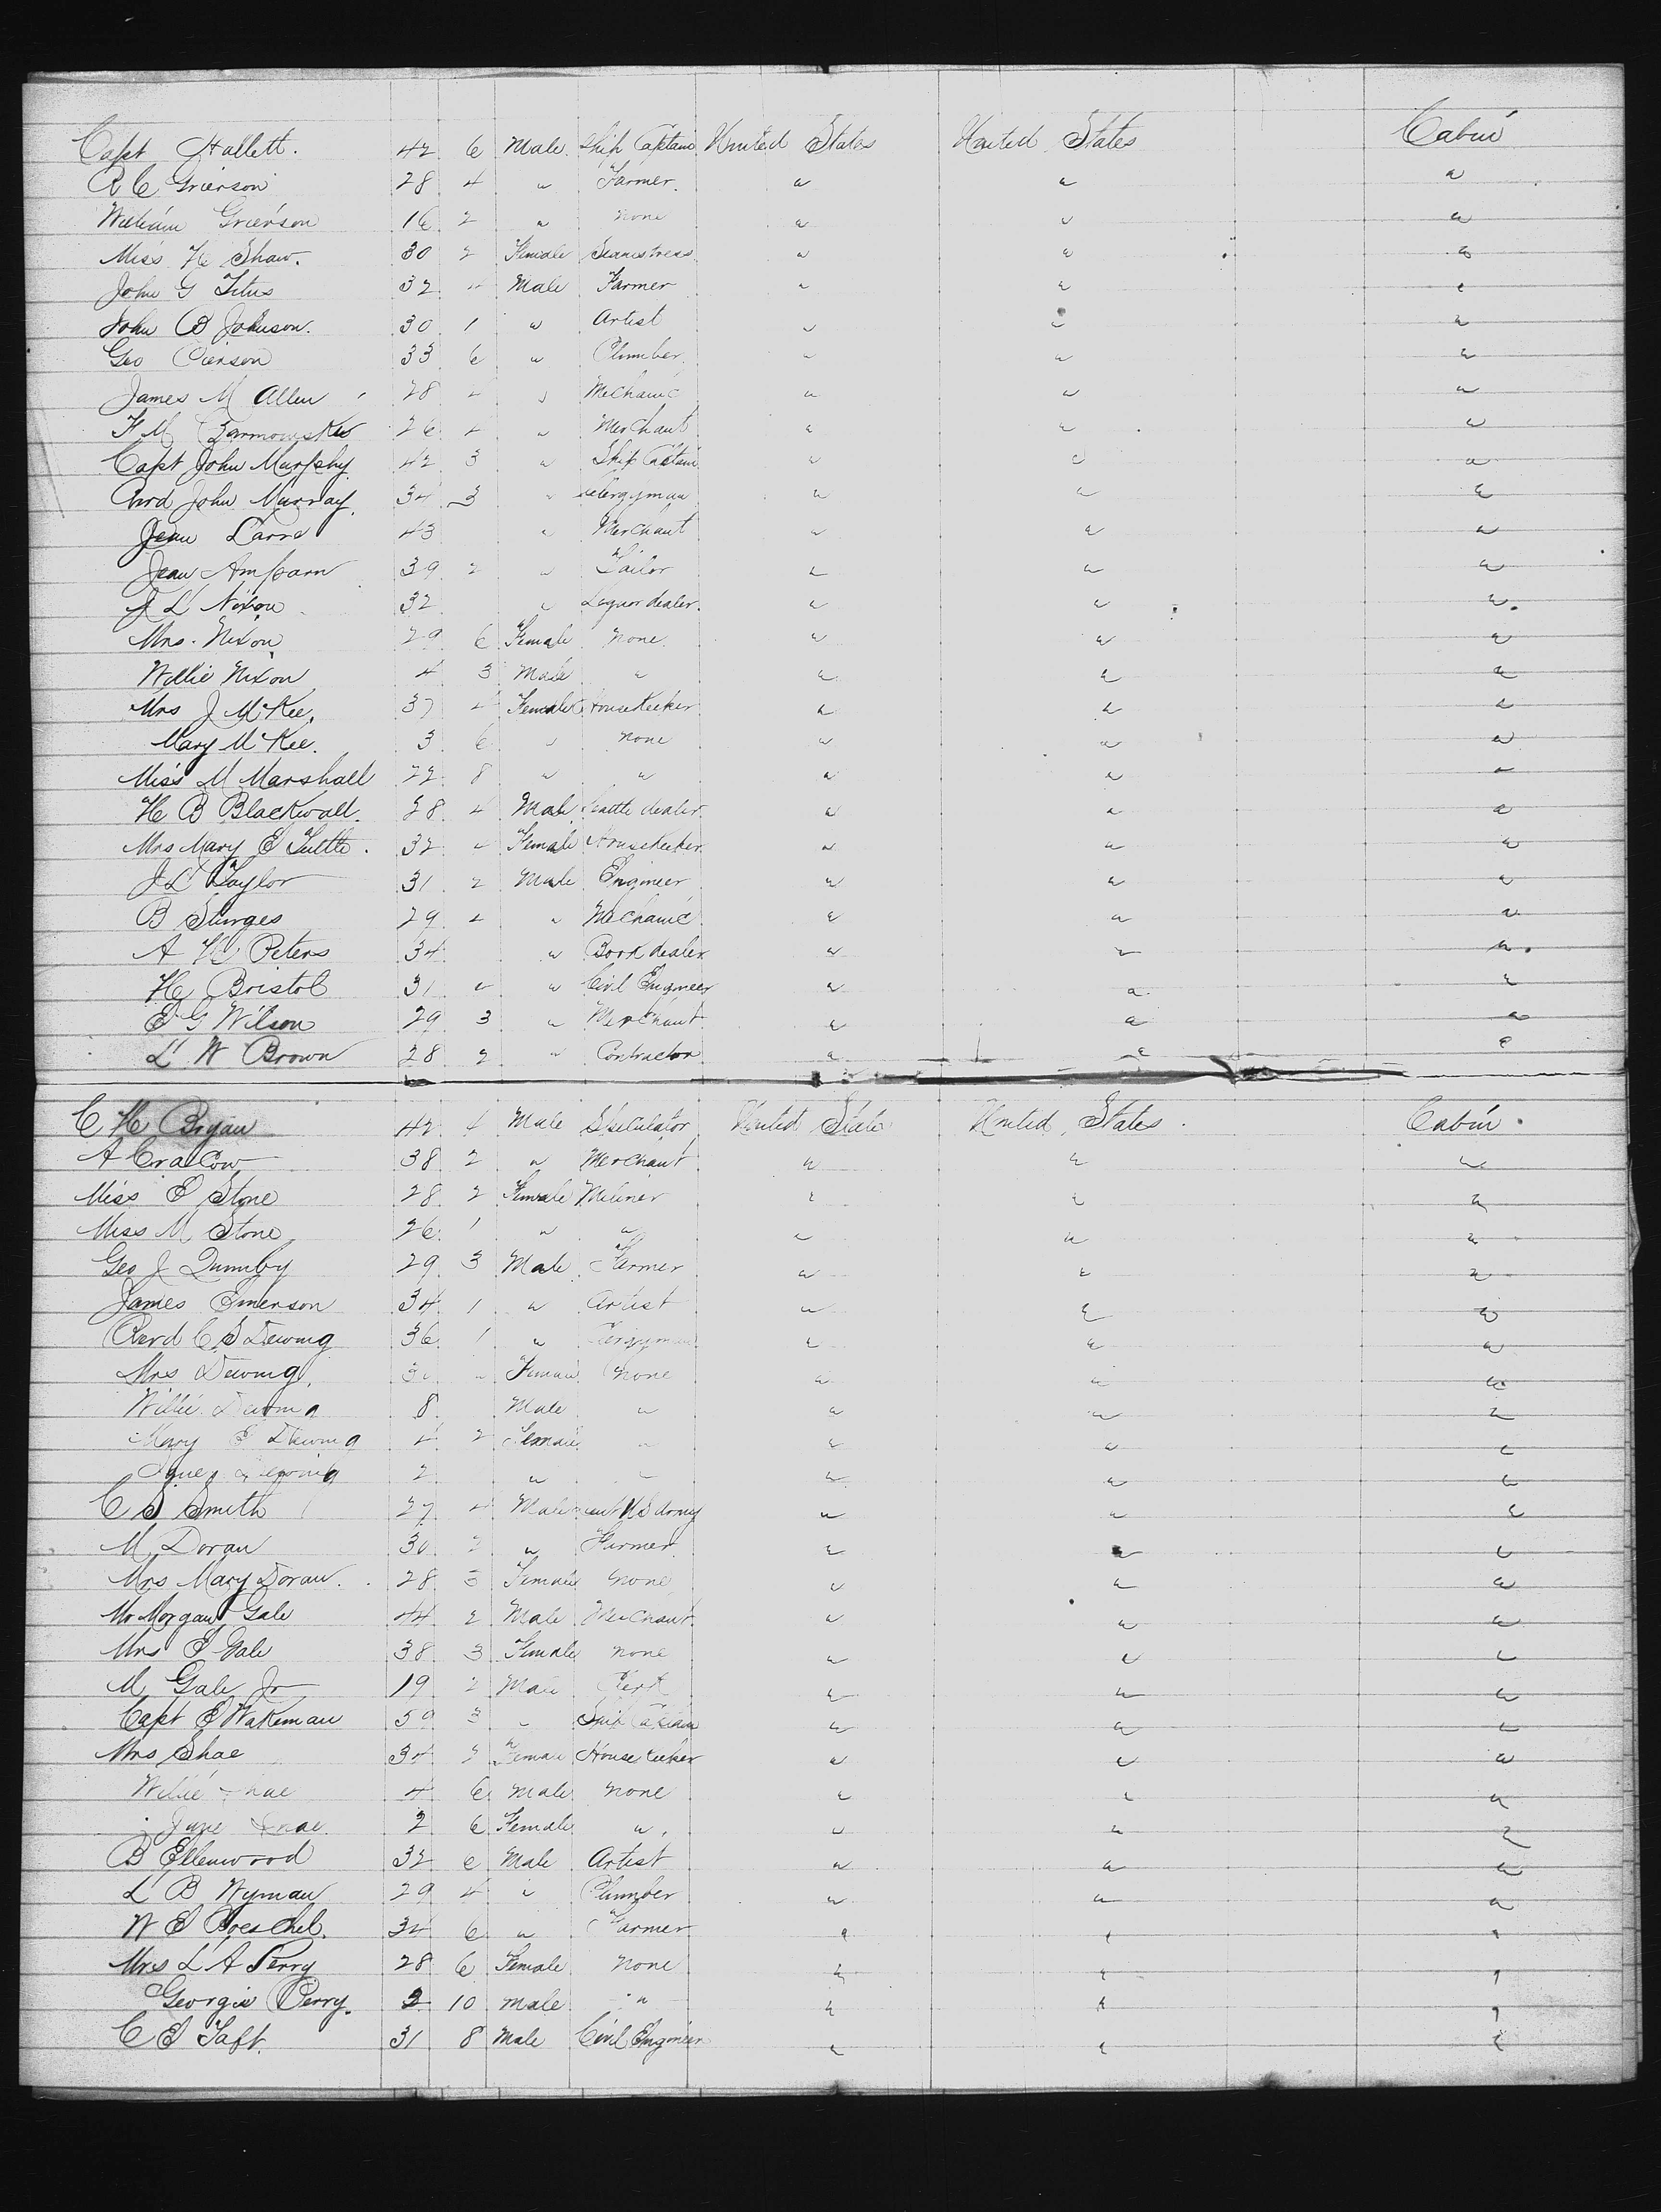 Capt Hallett. 42 6 Male Ship Captain United States United States Cabin
R C Grierson 28 4 " Farmer. " " "
William Grierson 16 2 " none " " "
Miss H Shaw. 30 2 Female Seamstress " " "
John G Titus 32 4 Male Farmer " " "
John B Johnson. 30 1 " Artist " " "
Geo Pierson 33 6 " Plumber " " "
James M Allen 28 4 " Mechanic " " "
F M 26 4 " Merchant " " "
Capt John Murphy 42 3 " Ship Captain " " "
Revd John Murray. 34 3 " Clergyman " " "
Jean Larre 43 " Merchant " " "
Jean 39 2 " Tailor " " "
J L Nixon 32 " Liquor dealer. " " "
Mrs. Nixon 29 6 Female none " " "
Willie Nixon 4 3 Male " " " "
Mrs J McKee. 37 4 Female Housekeeper " " "
Mary McKee. 3 6 " none " " "
Miss M Marshall 22 8 " " " " "
H B Blackwall. 28 4 Male Cattle dealer. " " "
Mrs Mary E Tuttle. 32 " Female Housekeeper " " "
J L Taylor 31 2 Male Engineer " " "
B Sturges 29 4 " Mechanic " " "
A H Peters 34 " Book dealer " " "
H Bristol 31 " " Civil Engineer " " "
E G Wilson 29 3 " Merchant " " "
L W Brown 28 2 " Contractor " " "
C H Bryan 42 4 Male Speculator United States United States. Cabin.
A Cracow 38 2 " Merchant " " "
Miss E Stone 28 2 Female Miliner " " "
Miss M Stone 26 1 " " " " "
Geo J Quimby 29 3 Male Farmer " " "
James Emerson 34 1 " Artist " " "
Revd C S Dewing 36 1 " Clergyman " " "
Mrs Dewing. " Female none " " "
Willie Dewing 8 Male " " " "
Mary E Dewing 4 2 Female " " " "
Dewing 2 " " " " "
C S Smith 27 4 Male U S Army " " "
M Doran 30 2 " Farmer " " "
Mrs Mary Doran. 28 3 Female none " " "
Mr Morgan Gale 44 2 Male Merchant " " "
Mrs E Gale 38 3 Female none " " "
M Gale Jr 19 2 Male Clerk " " "
Capt E Wakeman 59 3 " Ship Captain " " "
Mrs Shae 34 2 Female Housekeeper " " "
Willie Shae 4 6 Male none " " "
Jane Shae 2 6 Female " " " "
B Ellenwood 32 6 Male Artist " " "
L B Wyman 29 4 " Plumber " " "
W E 34 6 " Farmer " " "
Mrs L A Perry 28 6 Female none " " "
Georgie Perry. 2 10 male " " " "
C E Taft. 31 8 Male Civil Engineer " " "